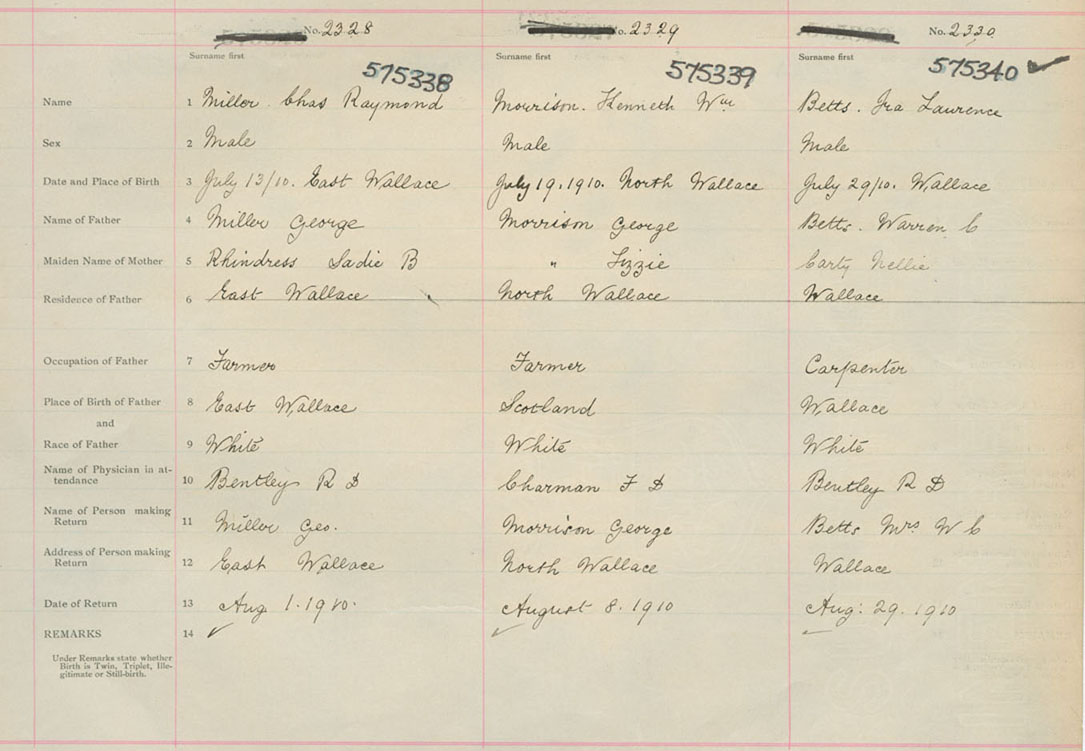 No. 2328 No. 2329 No. 2330
Surname first Surname first Surname first
575338 575339 575340
Name 1 Miller. Chas Raymond Morrison. Kenneth Wm Betts. Ira Laurence
Sex 2 Male Male Male
Date and Place of Birth 3 July 13/10. East Wallace July 19. 1910. North Wallace July 29/10. Wallace
Name of Father 4 Miller George Morrison George Betts. Warren C
Maiden Name of Mother 5 Rhindress Sadie B " Lizzie Carty Nellie
Residence of Father 6 East Wallace North Wallace Wallace
Occupation of Father 7 Farmer Farmer Carpenter
Place of Birth of Father 8 East Wallace Scotland Wallace
and
Race of Father 9 White White White
Name of Physician in at-
tendance 10 Bentley R D Charman F D Bentley R D
Name of Person making
Return 11 Miller Geo. Morrison George Betts Mrs W C
Address of Person making
Return 12 East Wallace North Wallace Wallace
Date of Return 13 Aug 1. 1910. August 8. 1910 Aug: 29. 1910
REMARKS 14
Under Remarks state whether
Birth is Twin, Triplet, Ille-
gitimate or Still-birth.